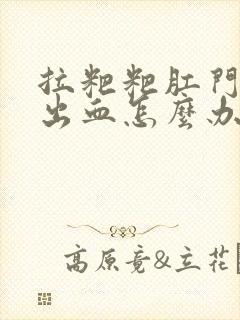 拉粑粑肛門
出血怎麼办
高原竟&立花